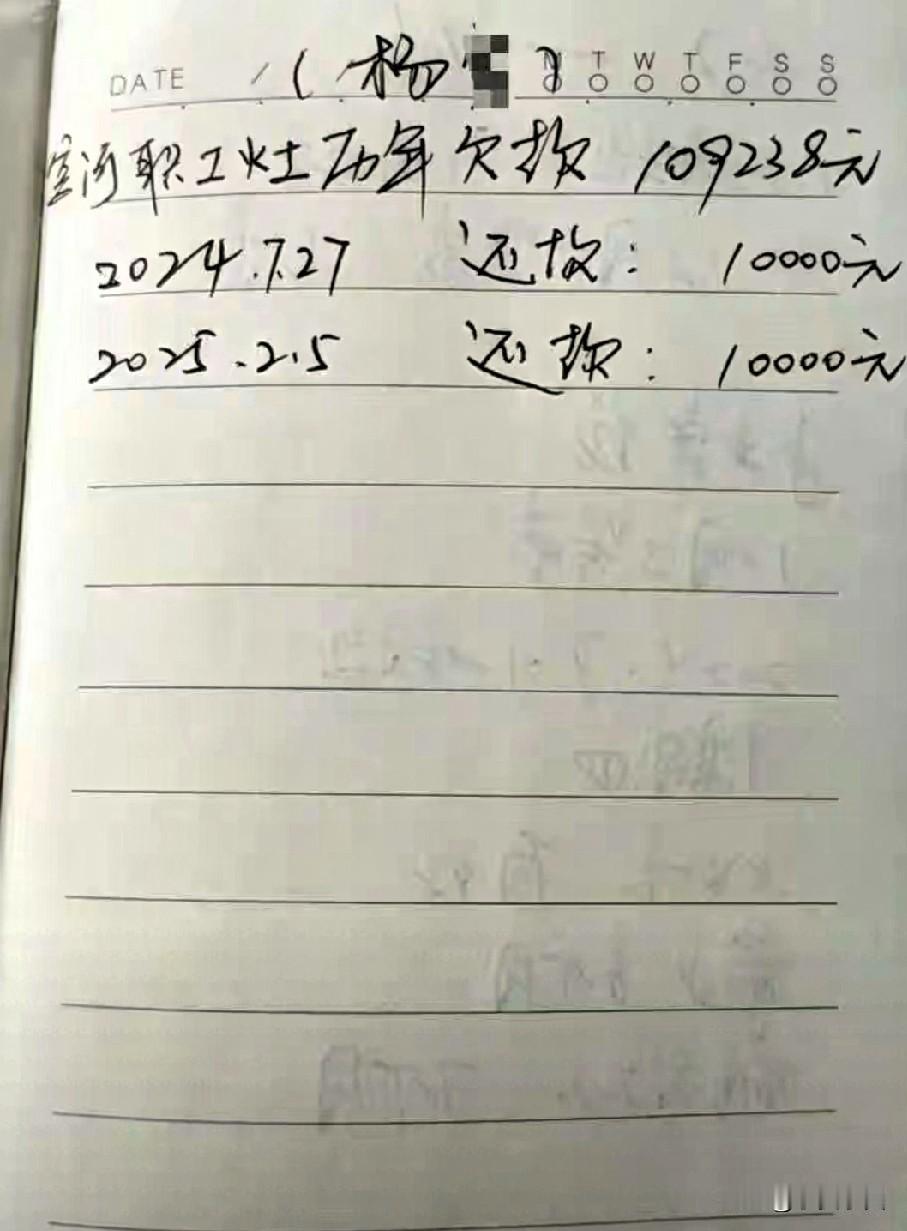 DATE / (杨 ) N T W T F S S
室河职工灶历年欠款 109238元
2024.7.27 还款: 10000元
2025.2.5 还款: 10000元